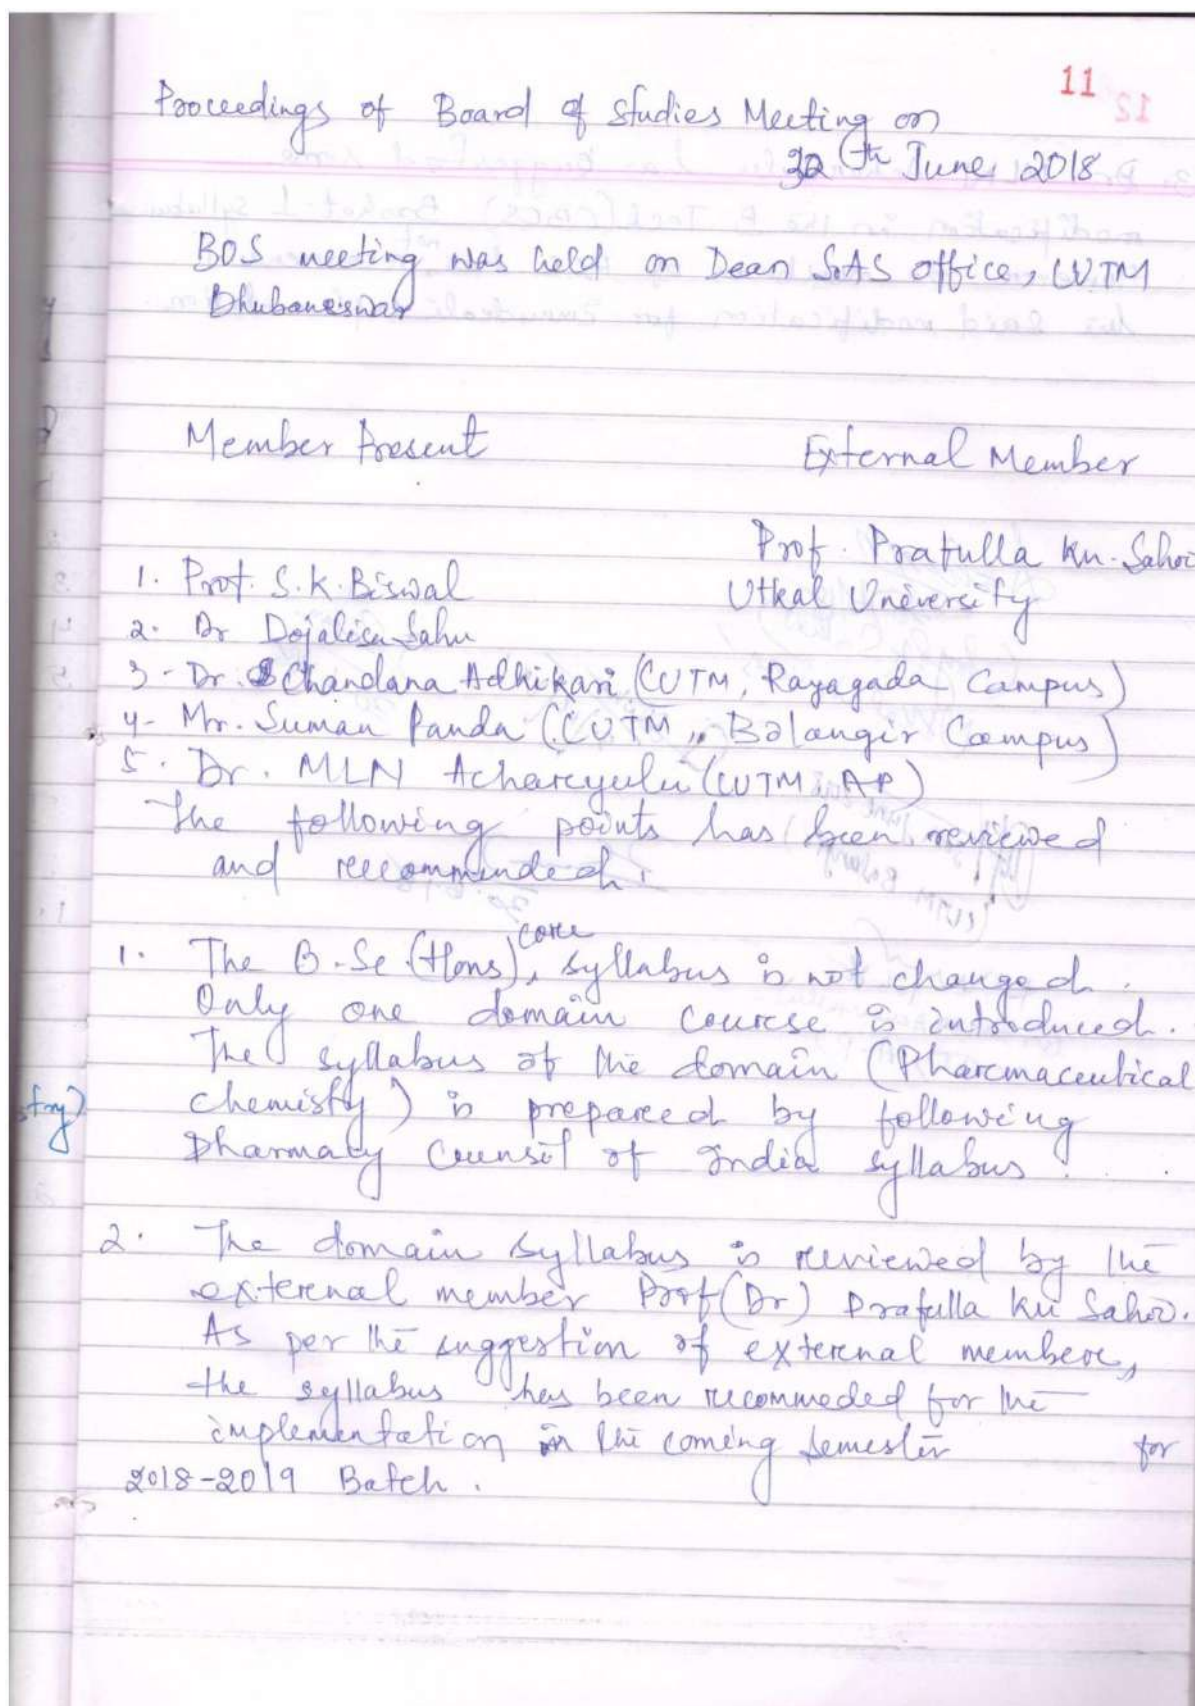 11
Proceedings of Board of Studies Meeting on
30th June, 2018
BOS meeting was held on Dean SAS office, CUTM
Bhubaneswar
Member Present
External Member
Prof. Prafulla Ku. Sahoo
Utkal University
1. Prof. S.K. Biswal
2. Dr Dojalisa Sahu
3. Dr. Chandana Adhikari (CUTM, Rayagada Campus)
4. Mr. Suman Panda (CUTM, Balangir Campus)
5. Dr. MLN Acharyulu (CUTM AP)
The following points has been reviewed
and recommended.
1. The B.Sc. (Hons), core syllabus is not changed.
Only one domain course is introduced.
The syllabus of the domain (Pharmaceutical
chemisty) is prepared by following
Pharmacy Counsil of India syllabus.
stry)
2. The domain syllabus is reviewed by the
external member Prof (Dr) Prafulla Ku Sahoo.
As per the suggestion of external member,
the syllabus has been recommeded for the
implementation in the coming semester for
2018-2019 Batch.